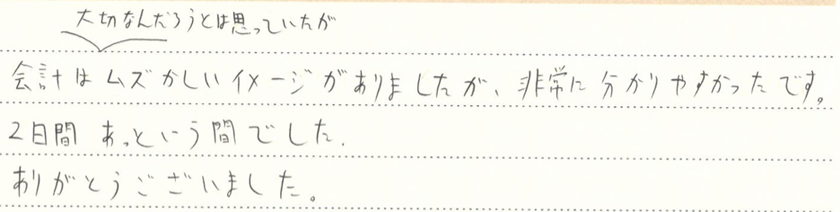 大切なんだろうとは思っていたが
会計はムズかしいイメージがありましたが、非常に分かりやすかったです。
2日間 あっという間でした.
ありがとうございました。